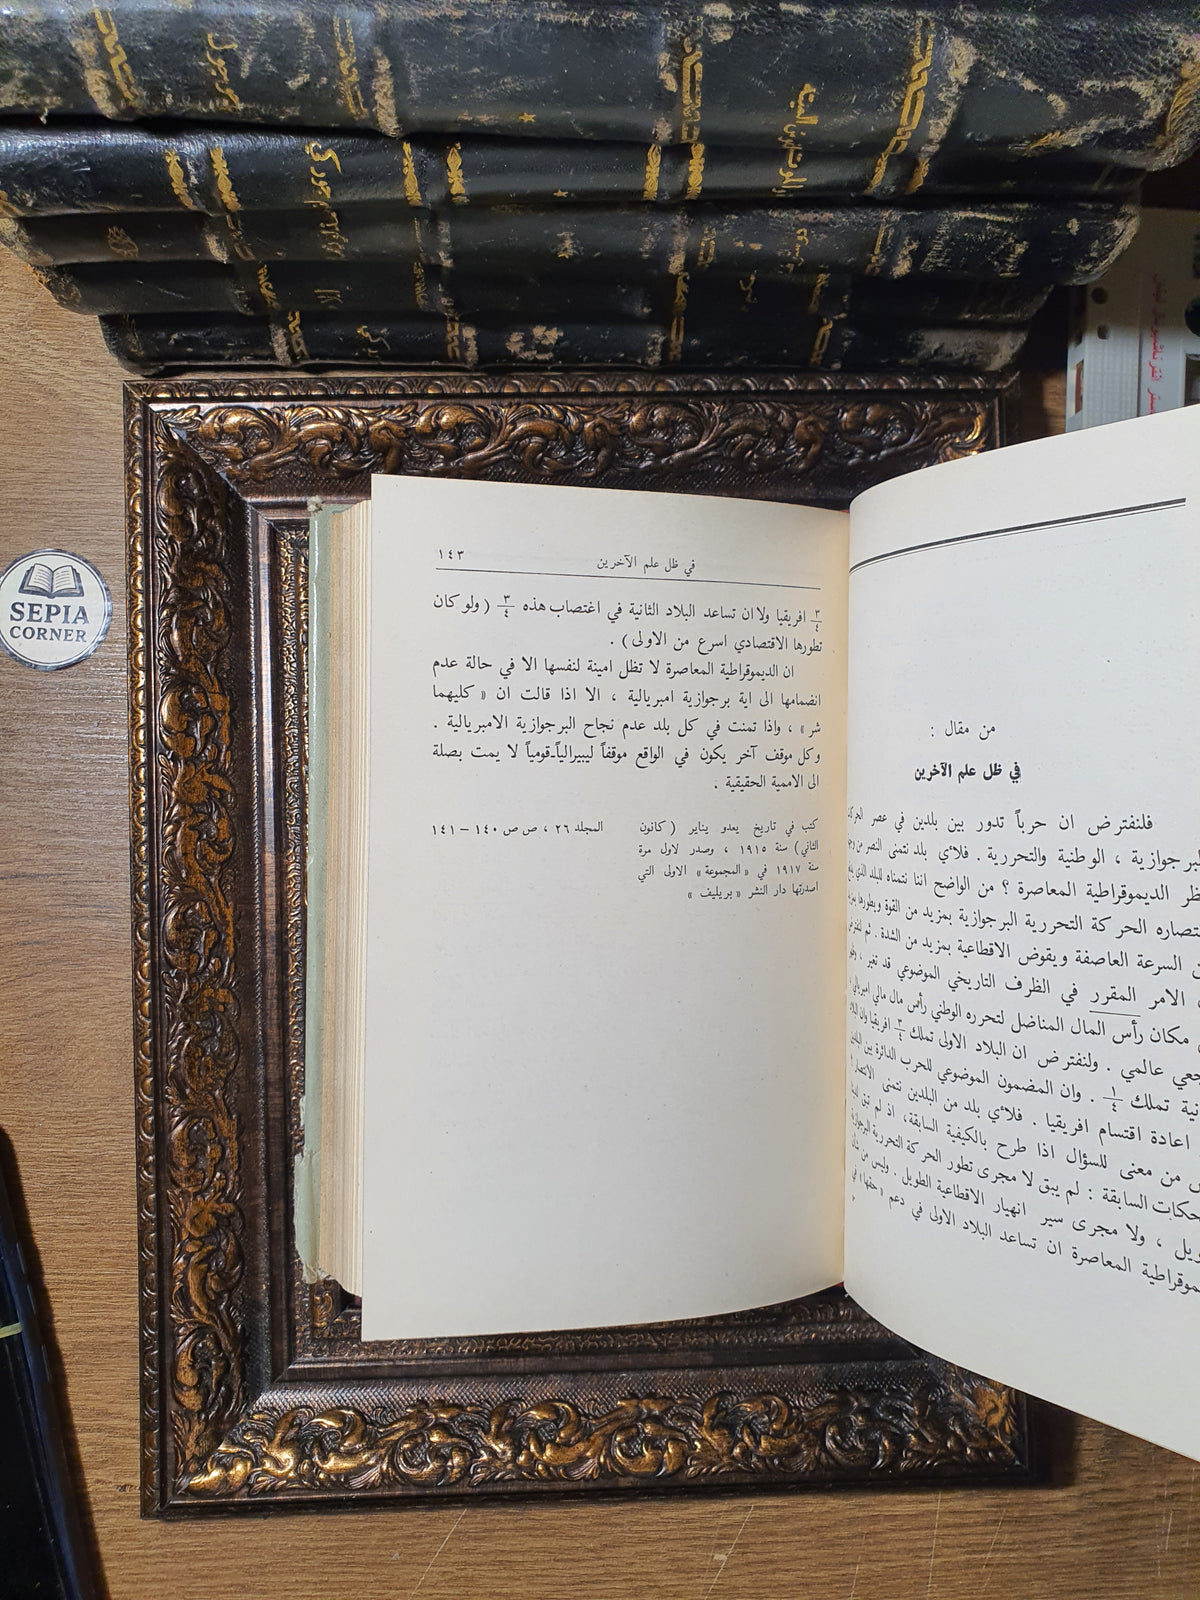 SEPIA
CORNER
من مقال :
في ظل علم الآخرين
فلنفترض ان حرباً تدور بين بلدين في عصر الحركات
البرجوازية ، الوطنية والتحررية . فلاي بلد نتمنى النصر من وجهة
نظر الديموقراطية المعاصرة ؟ من الواضح اننا نتمناه للبلد الذي
انتصاره الحركة التحررية البرجوازية بمزيد من القوة ويطورها
من السرعة العاصفة ويقوض الاقطاعية بمزيد من الشدة . ثم لنفترض
الامر المقرر في الظرف التاريخي الموضوعي قد تغير ،
مكان رأس المال المناضل لتحرره الوطني رأس مال مالي امبريالي ،
رجعي عالمي . ولنفترض ان البلاد الاولى تملك ٣/٤ افريقيا وان البلاد
الثانية تملك ١/٤ . وان المضمون الموضوعي للحرب الدائرة بين البلدين
اعادة اقتسام افريقيا . فلاي بلد من البلدين نتمنى الانتصار ؟
من معنى للسؤال اذا طرح بالكيفية السابقة ، اذ لم تبق لدينا
المحكات السابقة : لم يبق لا مجرى تطور الحركة التحررية البرجوازية
الطويل ، ولا مجرى سير انهيار الاقطاعية الطويل . وليس من شأن
الديموقراطية المعاصرة ان تساعد البلاد الاولى في دعم « حقها » في
في ظل علم الآخرين
١٤٣
٣/٤ افريقيا ولا ان تساعد البلاد الثانية في اغتصاب هذه ٣/٤ ( ولو كان
تطورها الاقتصادي اسرع من الاولى ) .
ان الديموقراطية المعاصرة لا تظل امينة لنفسها الا في حالة عدم
انضمامها الى اية برجوازية امبريالية ، الا اذا قالت ان « كليهما
شر » ، واذا تمنت في كل بلد عدم نجاح البرجوازية الامبريالية .
وكل موقف آخر يكون في الواقع موقفاً ليبيرالياً-قومياً لا يمت بصلة
الى الاممية الحقيقية .
كتب في تاريخ يعدو يناير ( كانون
الثاني ) سنة ١٩١٥ ، وصدر لاول مرة
سنة ١٩١٧ في « المجموعة » الاولى التي
اصدرتها دار النشر « بريليف »
المجلد ٢٦ ، ص ص ١٤٠ – ١٤١